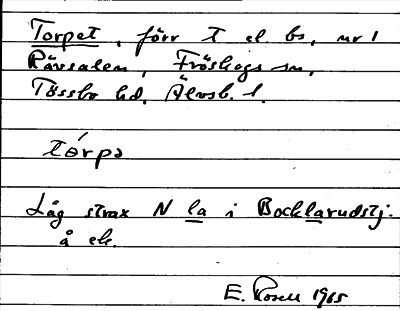 Torpet, förr t el. bs, nr 1
Rävsalen, Fröskogs sn,
Tössbo hd. Älvsb. l.
tórpə
Låg strax N la i Bocklarudstj.
å ek.
E. Rosell 1965